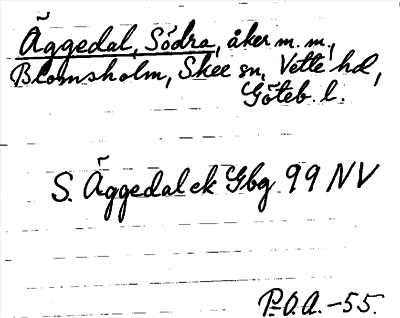 Äggedal, Södra, åker m.m.,
Blomsholm, Skee sn, Vette hd,
Göteb. l.
S. Äggedal ek Gbg 99 NV
P.O.A. -55.